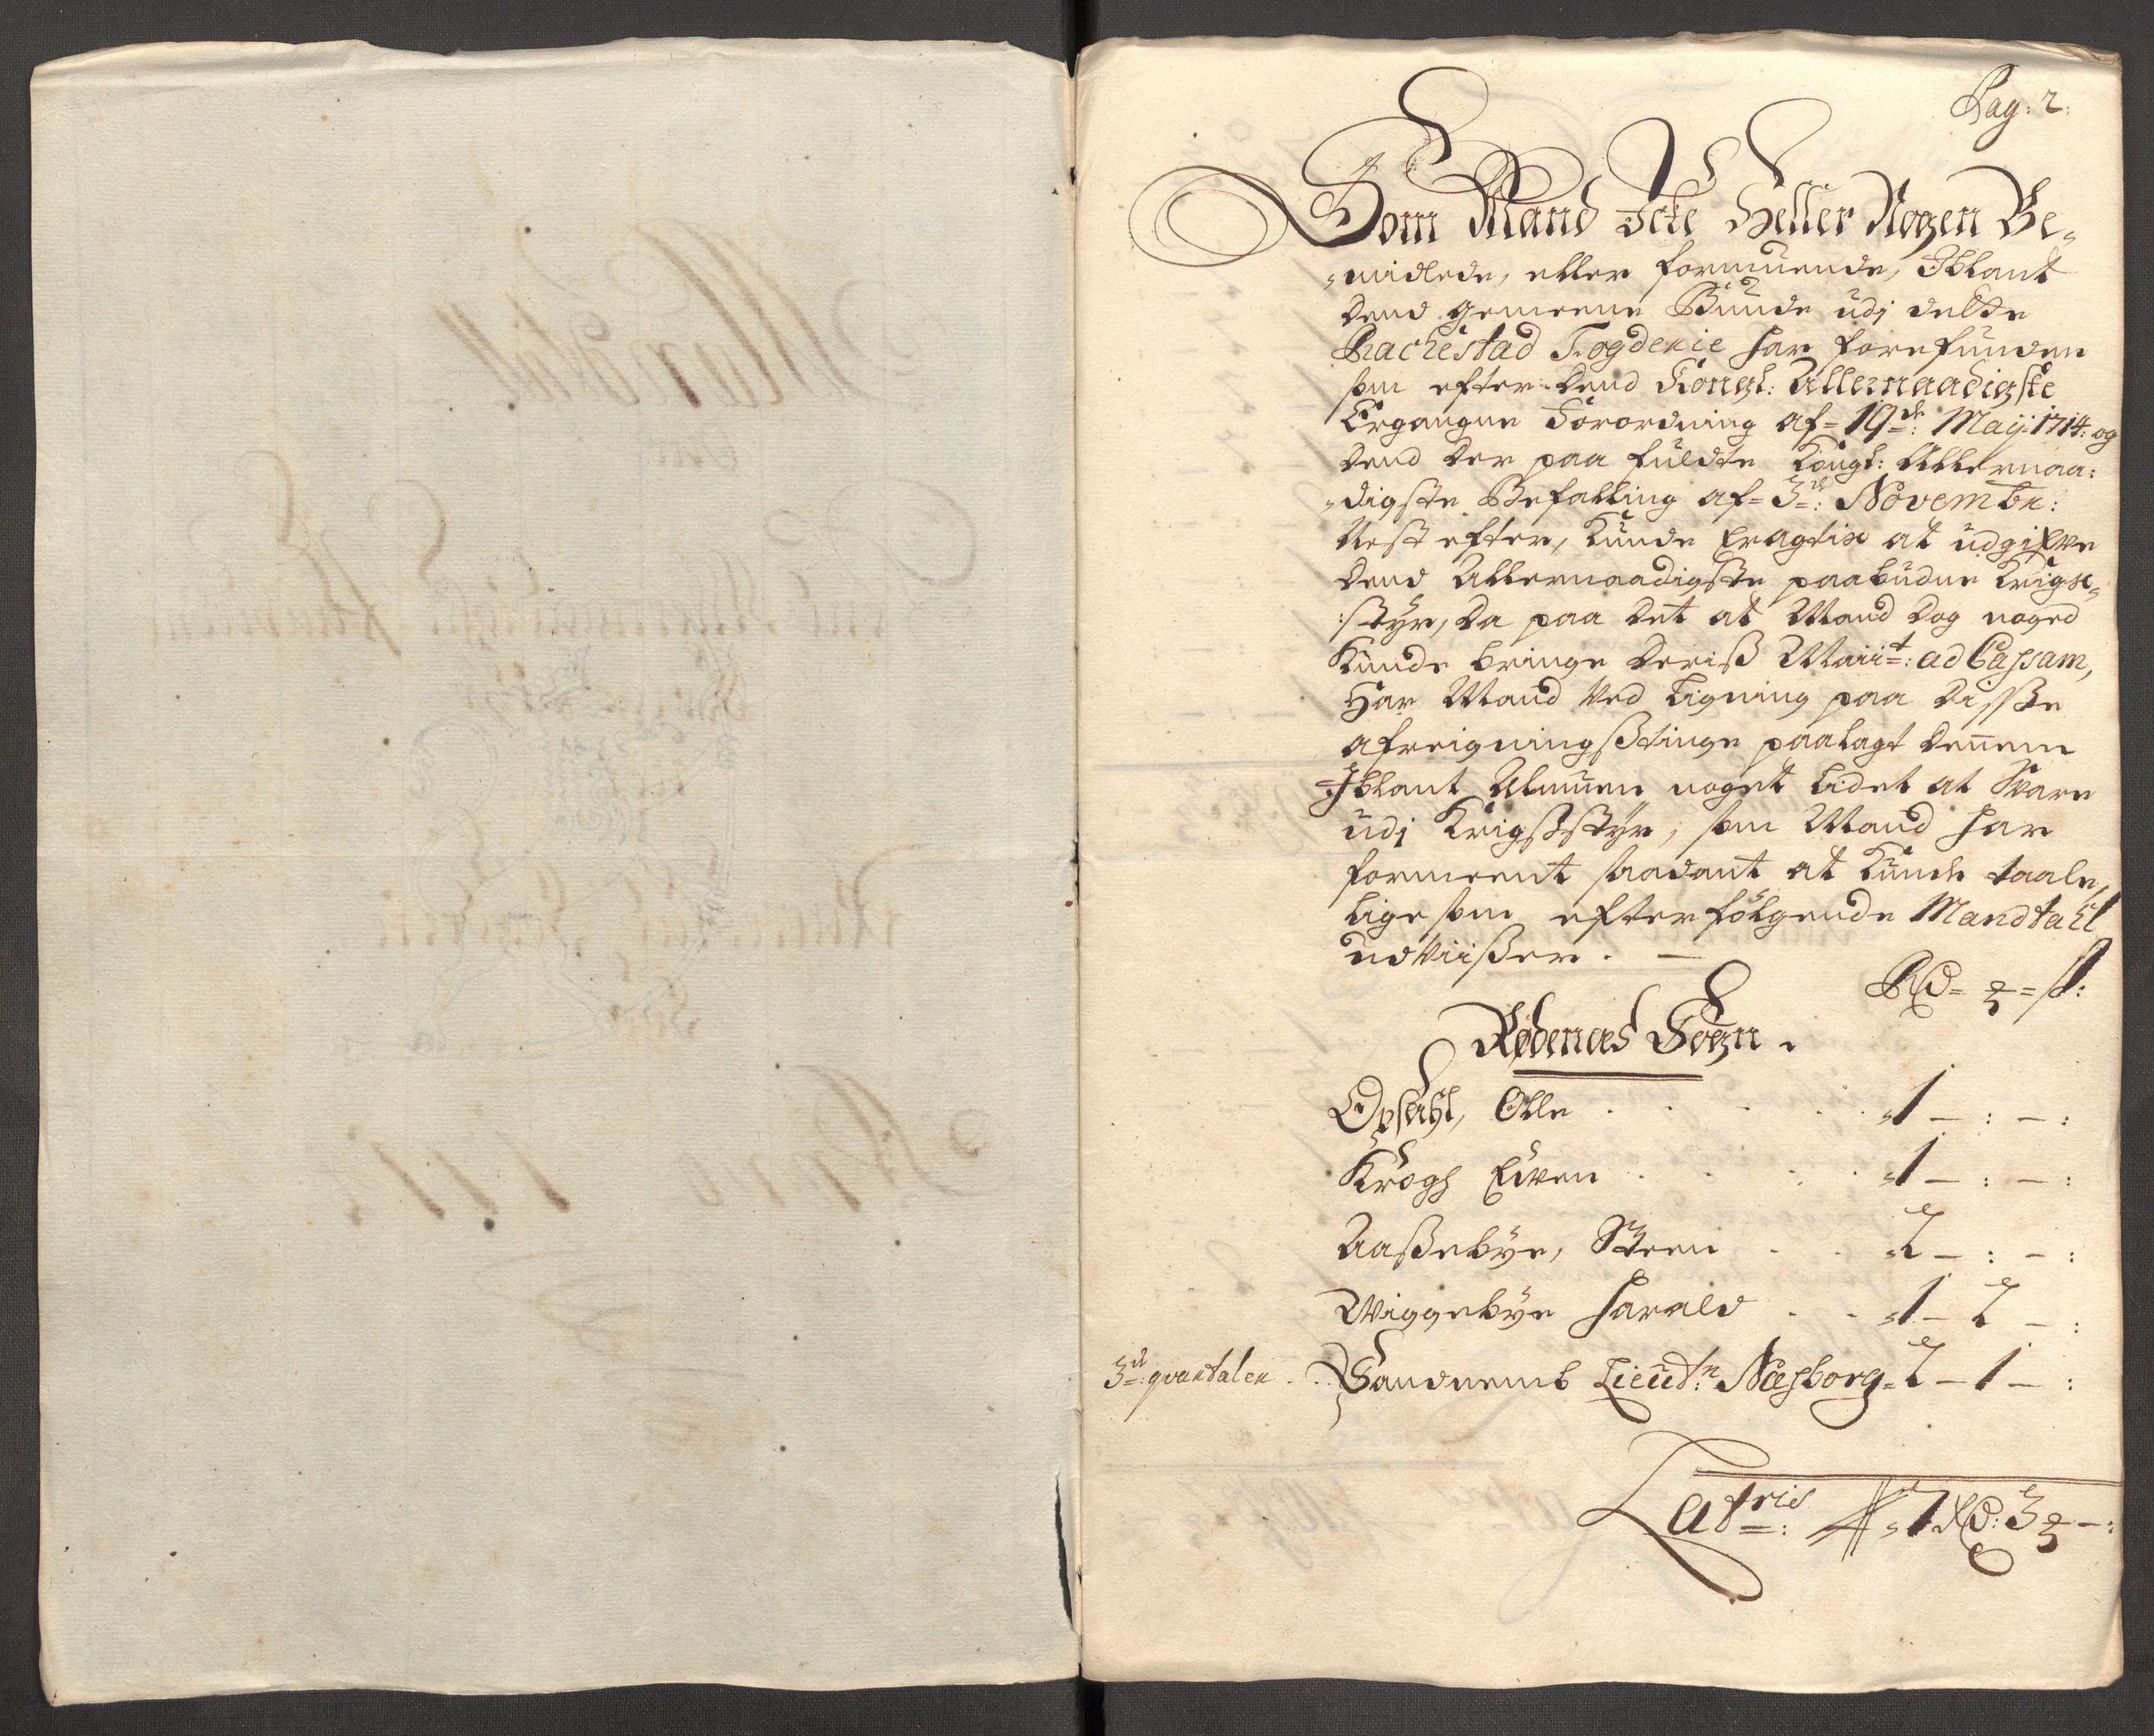 Pag: 2.
Som Mand Icke Heller Nogen Be-
midlede, eller formuende, Iblant
dend gemeene Bunde udj dette
Rachestad Fogderie har forefunden
som efter dend Kongl: Allernaadigste
Ergangne Forordning af 19de: Maij 1714: og
dend der paa fuldte Kongl: Allernaa:
digste Befalling af 3de: Novembr:
Nest efter, kunde eragtis at udgifve
dend Allernaadigste paabudne Krigs-
:styr, da paa det at Mand dog noged
kunde bringe deriß Maiit: ad Cassam,
Har Mand ved Ligning paa disse
afreigningßtinge paalagt dennem
Iblant Almuen noget lidet at Svare
udj Krigßstyr, som Mand har
formeent saadant at kunde taale,
lige som efterfølgende Mandtahl
udviißer. —
Rd = ꝫ = ß:
Rødenæs Sogn.
Opsahl, Olle . . . . 1 — : — :
Krogh Even . . . . 1 — : — :
Aaßebye, Steen . . 1 — : — :
Wiggebye Harald . . 1 — 2 — :
3de: qvartaler . Sandnemb Lieutn: Næsborg = 2 — 1 — :
Latris: 7 Rd: 3 ꝫ — :